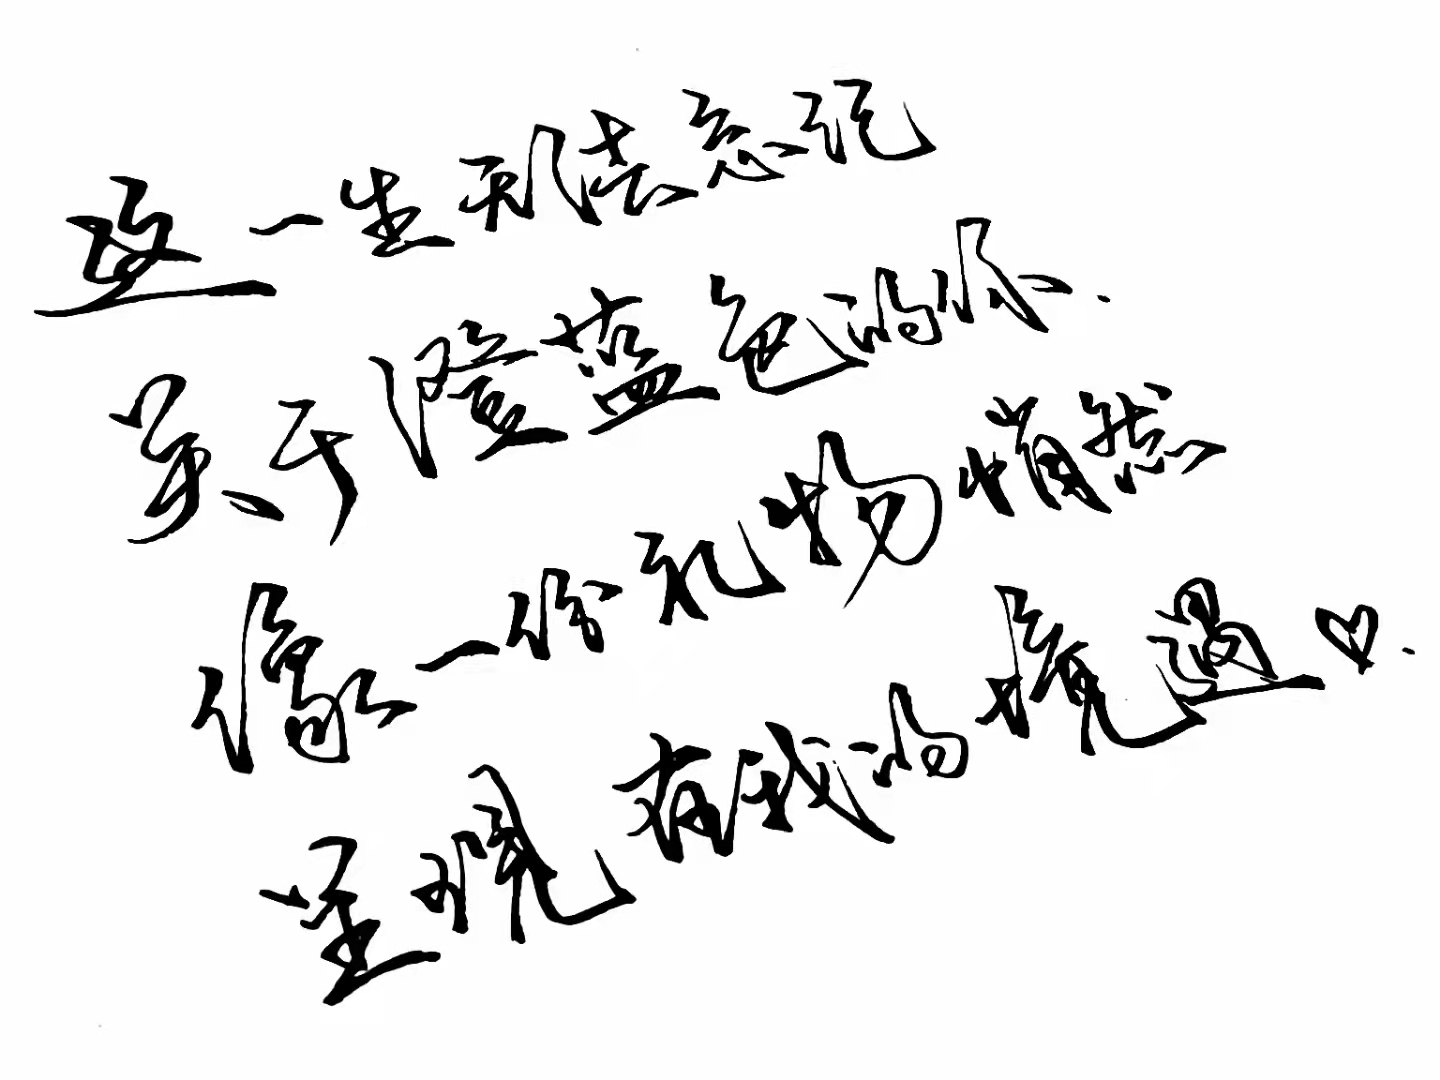 这一生无法忘记
关于澄蓝色的你.
像一份礼物悄然
呈现有我的境遇♡.